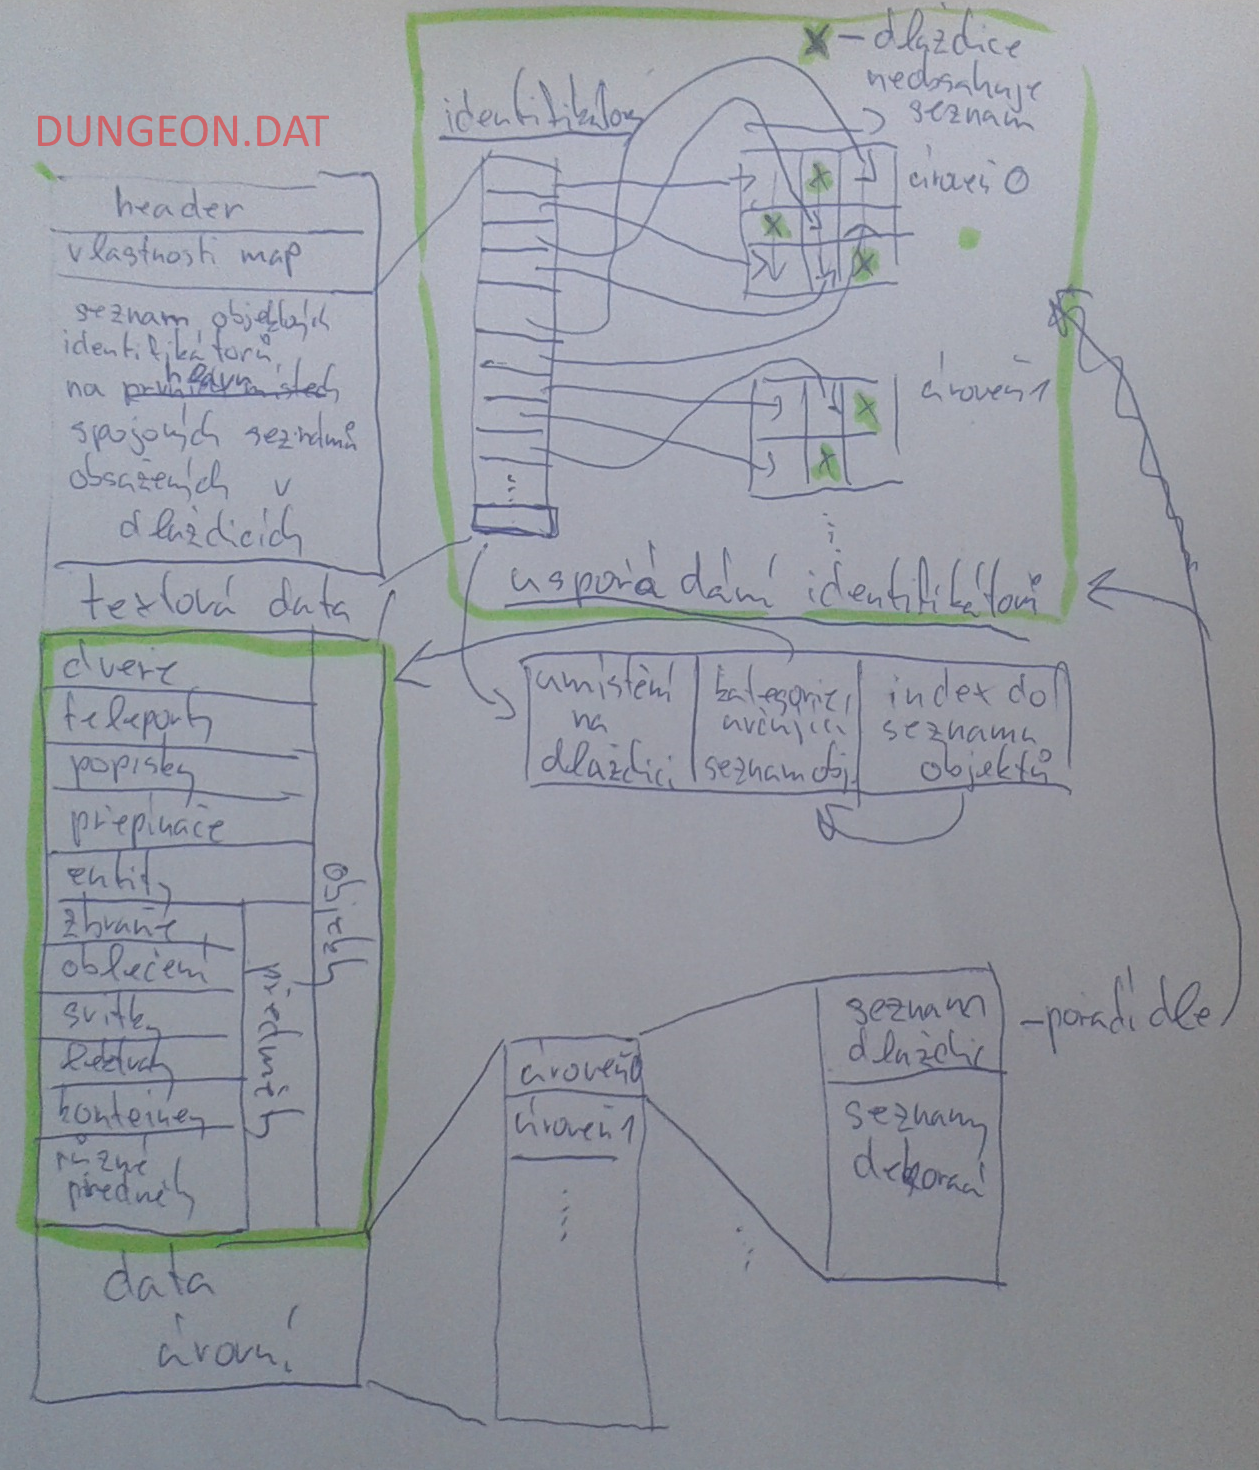 DUNGEON.DAT
header
vlastnosti map
seznam objektových
identifikátorů
na prvních místech
hlavn
spojových seznamů
obsažených v
dlaždicích
textová data
dveře
teleporty
popisky
přepínače
entity
zbraně
oblečení
svitky
lektvary
kontejnery
různé
předměty
předměty
Objekty
data
úrovní
identifikátorů
x – dlaždice
neobsahuje
seznam
úroveň 0
úroveň 1
uspořádání identifikátorů
umístění
na
dlaždici
kategorie,
určující
seznam obj.
index do
seznamu
objektů
úroveň 0
úroveň 1
seznam
dlaždic
seznamy
dekorací
– pořadí dle